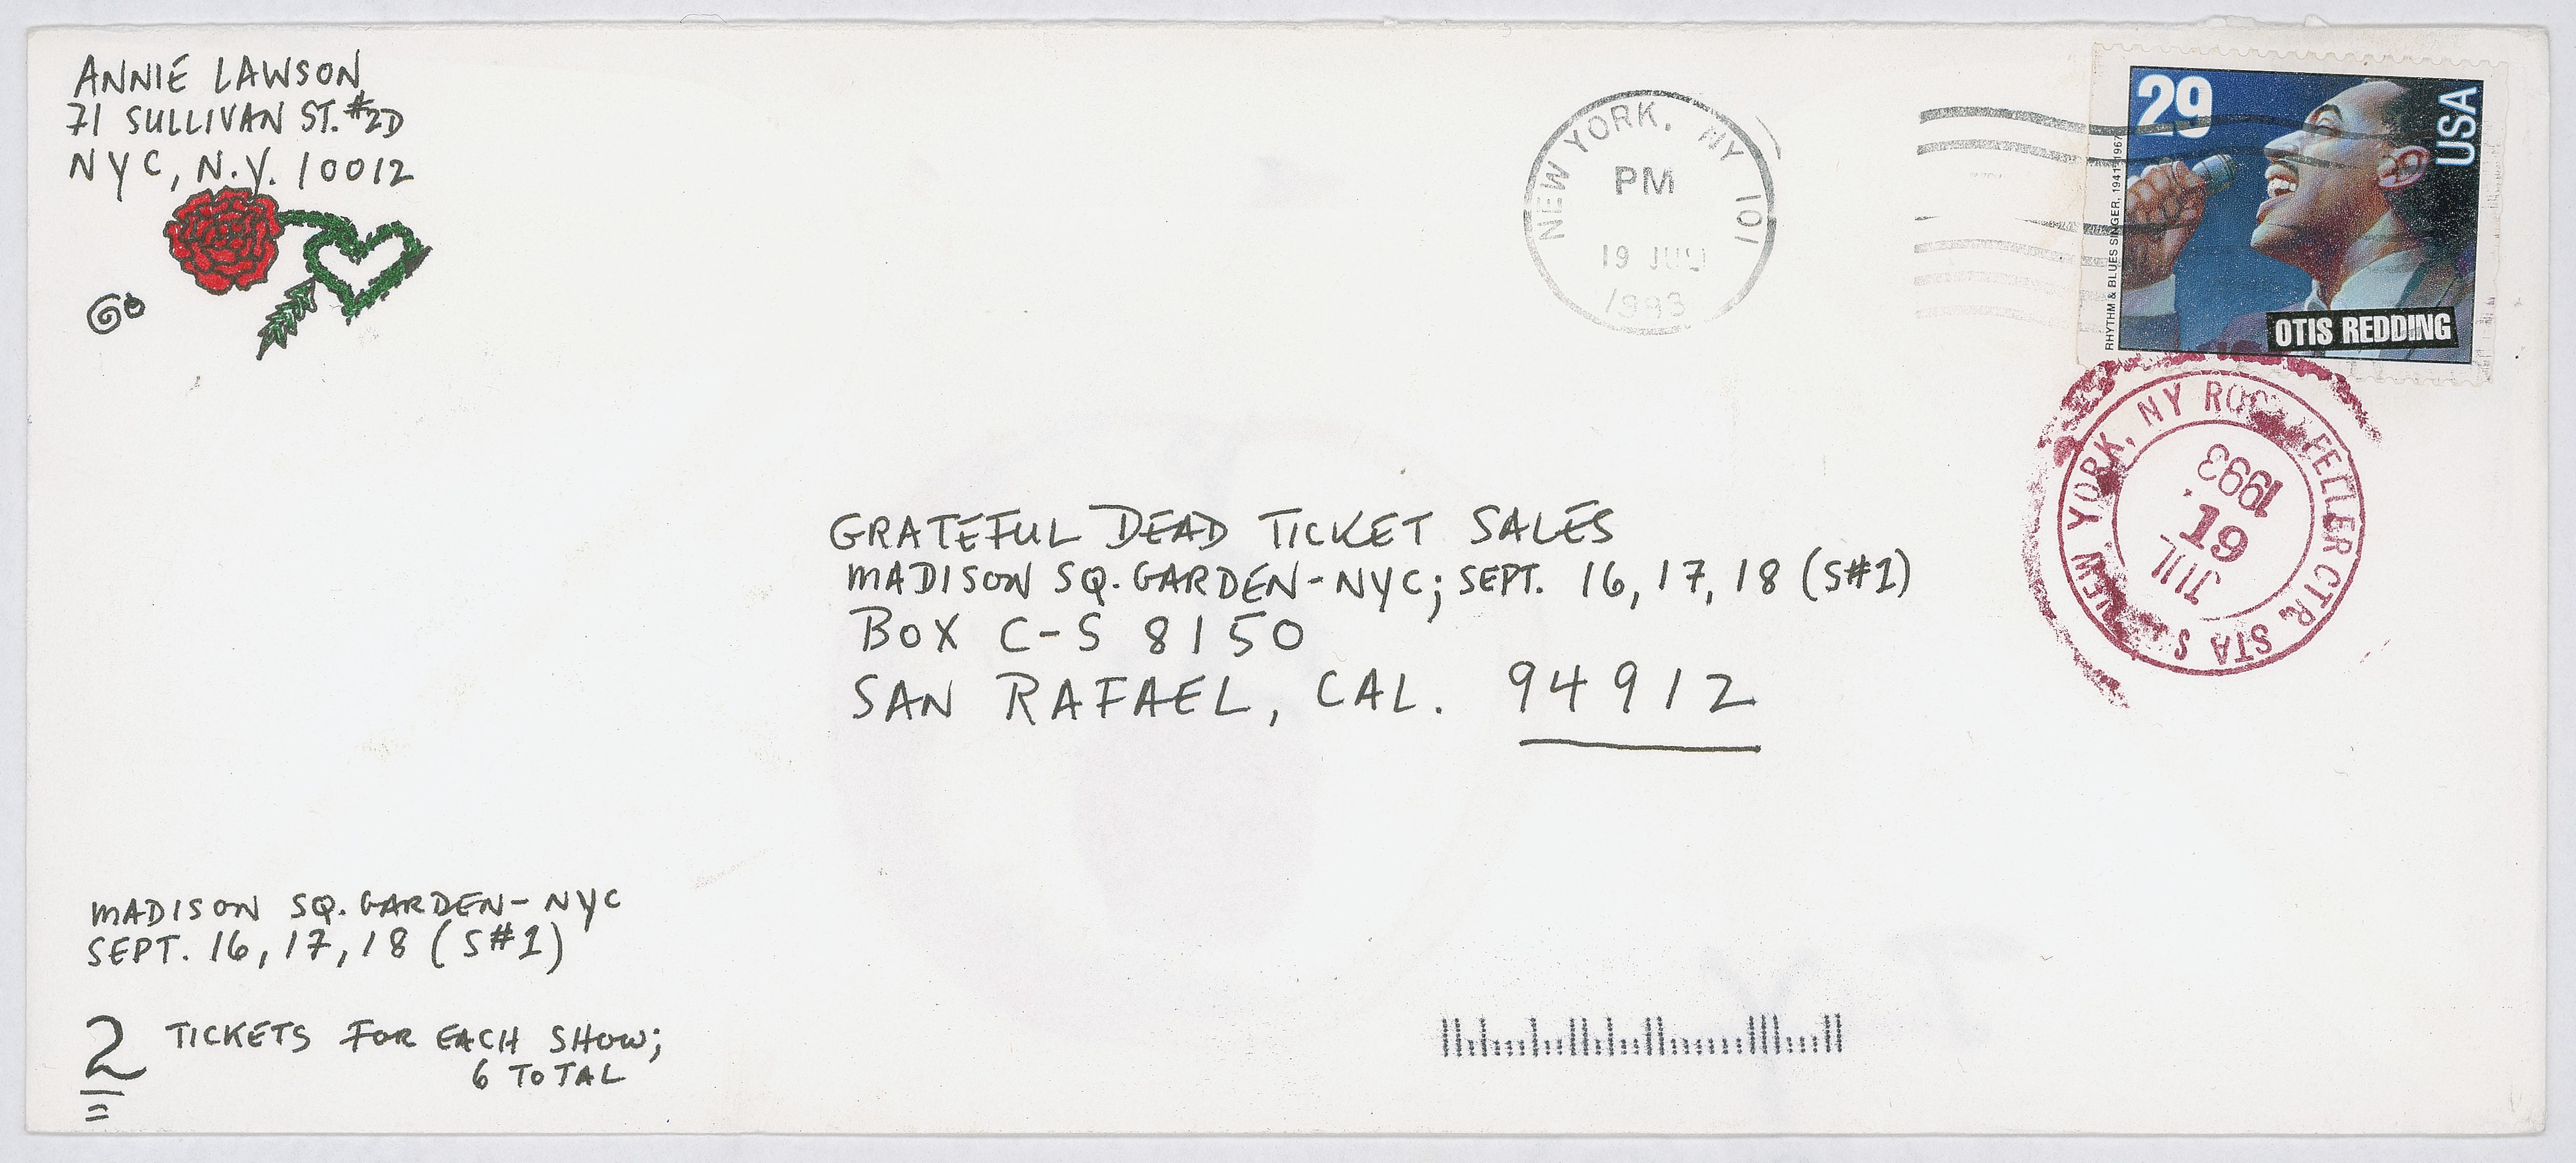 ANNIE LAWSON
71 SULLIVAN ST. #2D
NYC, N.Y. 10012
NEW YORK, NY 101
PM
19 JUL
1993
29
USA
RHYTHM & BLUES SINGER, 1941-1967
OTIS REDDING
NEW YORK, NY ROCKEFELLER CTR. STA
JUL
19
1993
GRATEFUL DEAD TICKET SALES
MADISON SQ. GARDEN-NYC; SEPT. 16, 17, 18 (S#1)
BOX C-S 8150
SAN RAFAEL, CAL. 94912
MADISON SQ. GARDEN-NYC
SEPT. 16, 17, 18 (S#1)
2 TICKETS FOR EACH SHOW;
6 TOTAL